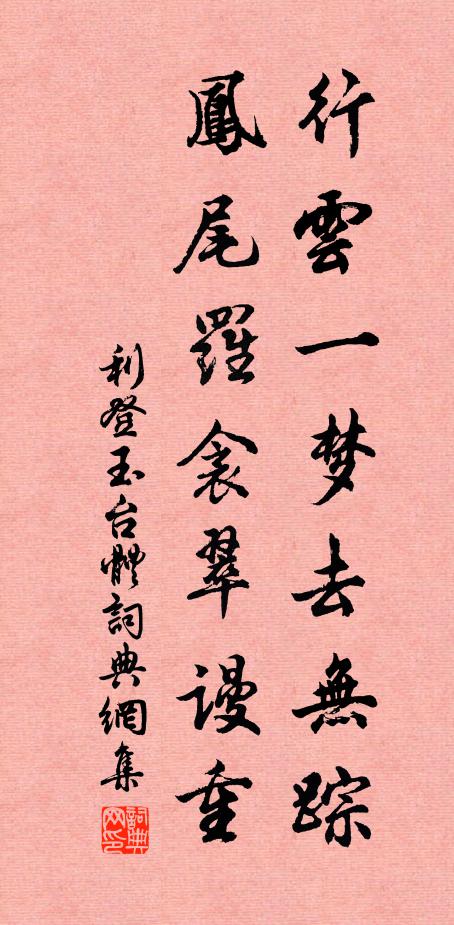 行雲一梦去無踪
鳳尾羅衾翠謾重
利登玉台體詞典網集
詞典网印